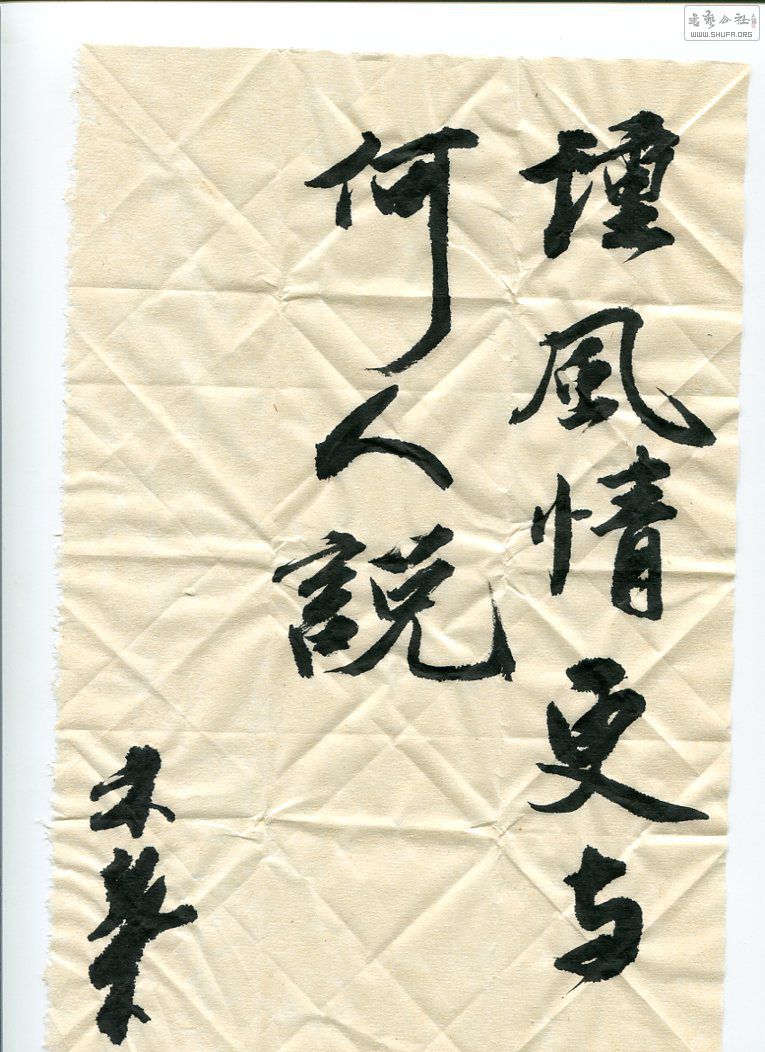 書藝公社
WWW.SHUFA.ORG
種風情更与
何人説